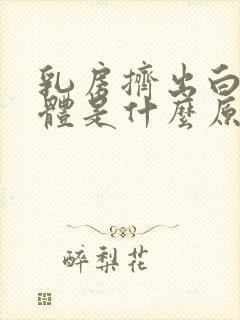 乳房擠出白
體是什麼原
醉梨花